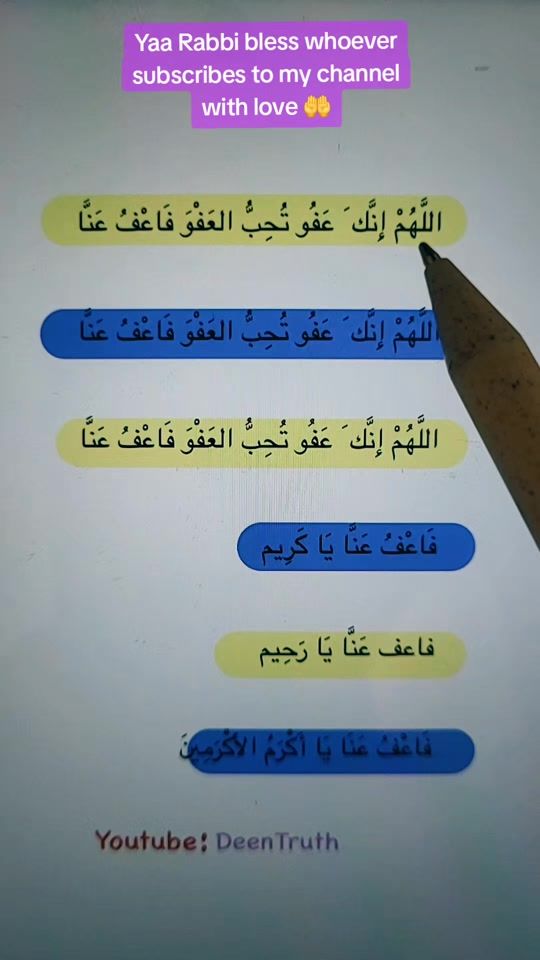 Yaa Rabbi bless whoever
subscribes to my channel
with love 🤲
اللَّهُمْ إِنَّك َ عَفُو تُحِبُّ العَفْوَ فَاعْفُ عَنَّا
اللَّهُمْ إِنَّك َ عَفُو تُحِبُّ العَفْوَ فَاعْفُ عَنَّا
اللَّهُمْ إِنَّك َ عَفُو تُحِبُّ العَفْوَ فَاعْفُ عَنَّا
فَاعْفُ عَنَّا يَا كَرِيم
فاعف عَنَّا يَا رَحِيم
فَاعْفُ عَنَّا يَا أَكْرَمُ الأَكْرَمِينَ
Youtube: DeenTruth